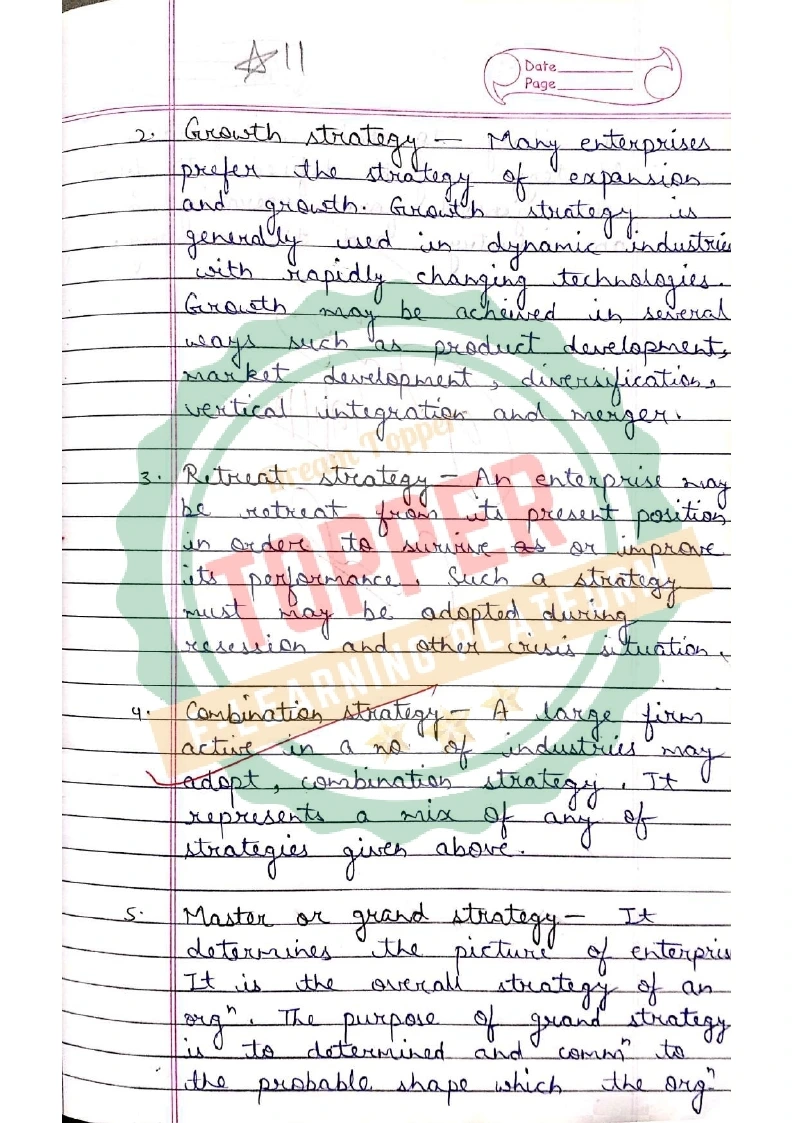 ☆11
Date
Page
2. Growth strategy - Many enterprises
prefer the strategy of expansion
and growth. Growth strategy is
generally used in dynamic industrie
with rapidly changing technologies.
Growth may be acheived in several
ways such as product development,
market development, diversification,
vertical integration and merger.
Dream Topper
3. Retreat strategy - An enterprise may
be retreat from its present position
in order to survive as or improve
its performance. Such a strategy
must may be adopted during
resession and other crisis situation.
TOPPER
E-LEARNING PLATFORM
4. Combination strategy - A large firm
active in a no. of industries may
adopt, combination strategy. It
represents a mix of any of
strategies given above.
5. Master or grand strategy - It
determines the picture of enterpris
It is the overall strategy of an
orgⁿ. The purpose of grand strategy
is to determined and commⁿ to
the probable shape which the orgⁿ